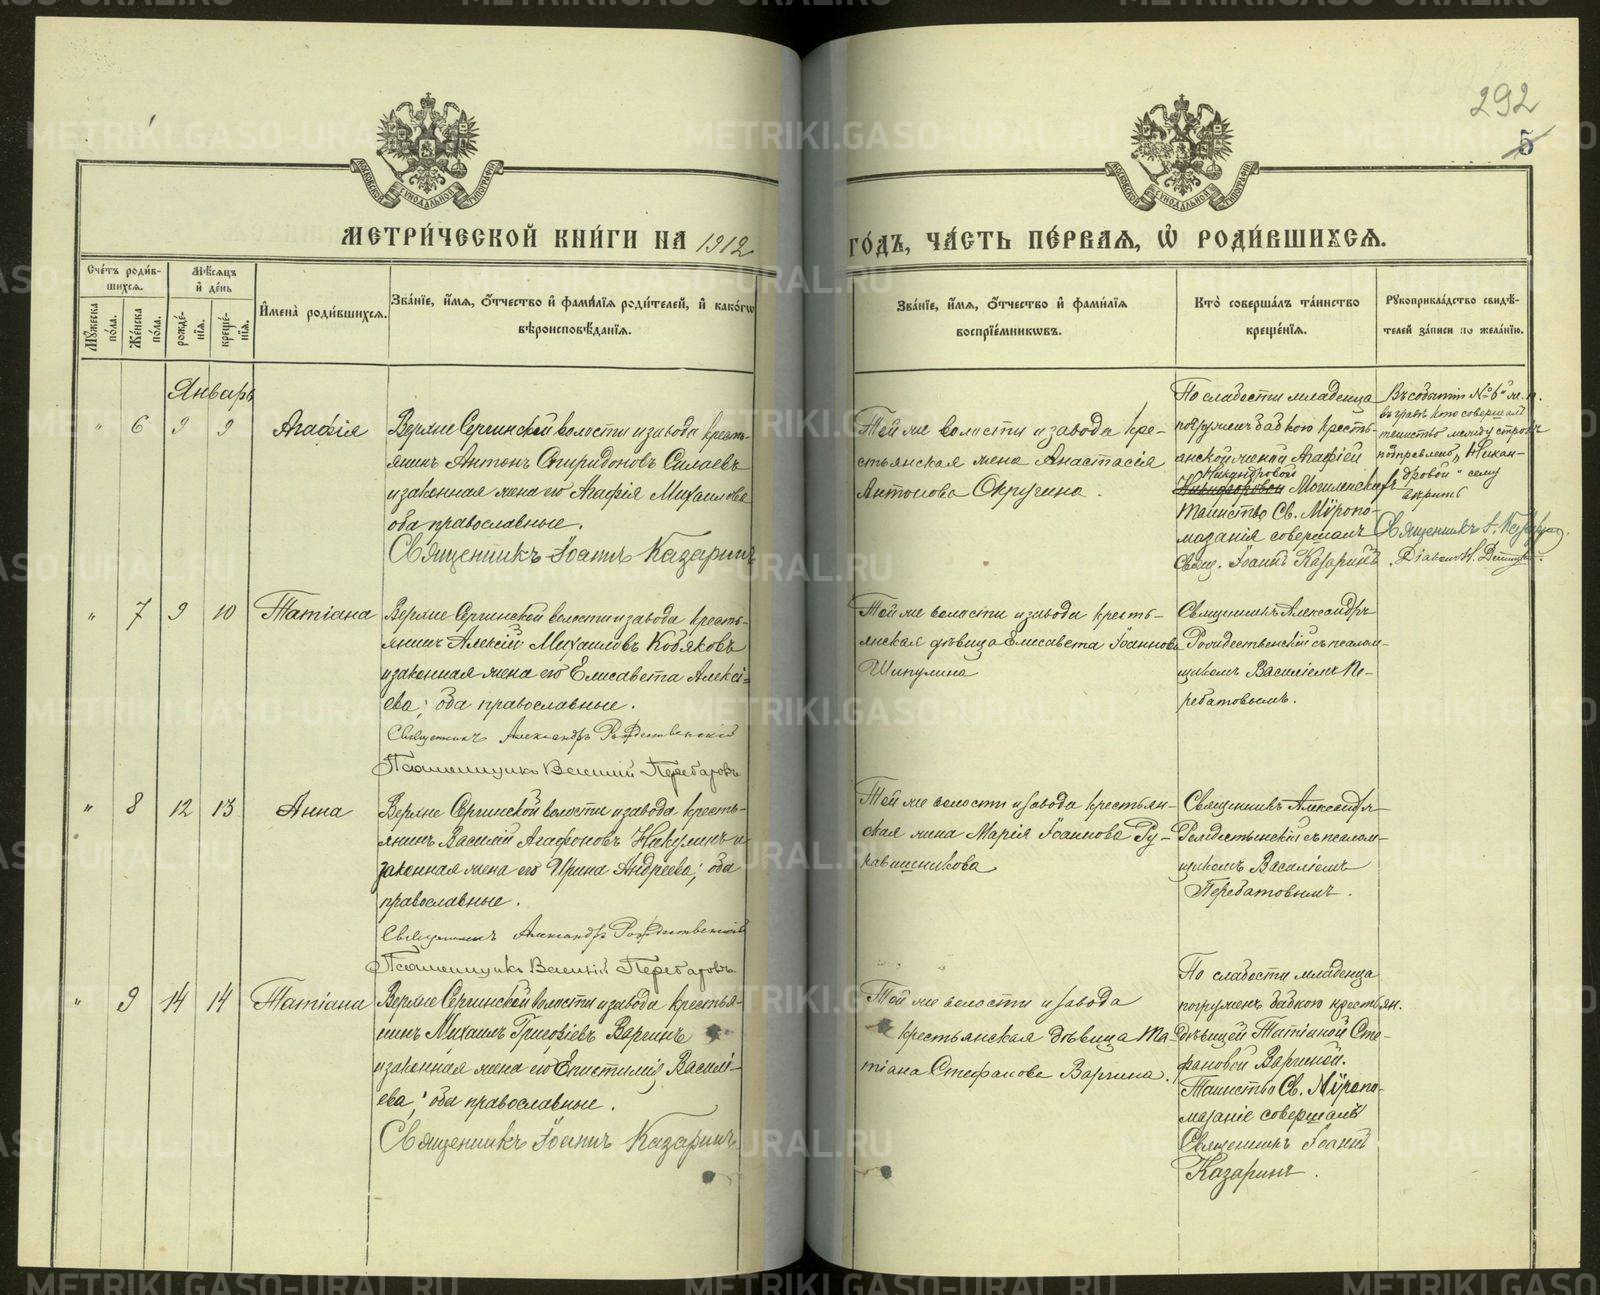 292
5
МОСКОВСКОЙ СѴНОДАЛЬНОЙ ТИПОГРАФІИ
МОСКОВСКОЙ СѴНОДАЛЬНОЙ ТИПОГРАФІИ
МЕТРИ́ЧЕСКОЙ КНИ́ГИ НА 1912
ГО́ДЪ, ЧА́СТЬ ПЕ́РВАЯ, Ѡ҆ РОДИ́ВШИХСЯ.
Сче́тъ роди́в-
шихся.
Мꙋ́жеска по́ла.
Же́нска по́ла.
Мѣ́сяцъ
и҆ де́нь
рожде́-
нїя.
креще́-
нїя.
И҆мена̀ роди́вшихся.
Зва́нїе, и҆́мя, ѻ҆́тчество и҆ фами́лїя роди́телей, и҆ како́гѡ
вѣроисповѣ́данїя.
Зва́нїе, и҆́мя, ѻ҆́тчество и҆ фами́лїя
воспрїе́мникѡвъ.
Кто̀ соверша́лъ та́инство
креще́нїя.
Рꙋкоприкла́дство свидѣ́-
телей за́писи по жела́нїю.
Январь
" 6 9 9 Агафія
Верхне Сергинской волости и завода кресть-
янинъ Антонъ Спиридоновъ Силаевъ
и законная жена его Агафія Михаилова
оба православные.
Священникъ Іоаннъ Казаринъ
Той же волости и завода кре-
стьянская жена Анастасія
Антонова Округина.
По слабости младенца
погруженъ бабкою кресть-
анской женой Агафіей
Никандровой
Могиленских
Таинство Св. Мѵропо-
мазанія совершалъ
Свящ. Іоаннъ Казаринъ
Въ событіи № 6 ж. п.
въ графѣ кто совершалъ
таинство между строкъ
подправлено "Никан-
дровой" сему
вѣрить
Священникъ І. Казаринъ.
Діаконъ Н.
" 7 9 10 Татіана
Верхне Сергинской волости и завода кресть-
янинъ Алексій Михаиловъ Кобяковъ
и законная жена его Елисавета Алексі-
ева; оба православные.
Священникъ Александръ Рождественскій
Псаломщикъ Василій Перебатовъ
Той же волости и завода кресть-
янская дѣвица Елисавета Іоаннова
Шипулина
Священникъ Александръ
Рождественскій съ псалом-
щикомъ Василіемъ Пе-
ребатовымъ.
" 8 12 13 Анна
Верхне Сергинской волости и завода кресть-
янинъ Василій Агафоновъ Накулинъ и
законная жена его Ирина Андреева; оба
православные.
Священникъ Александръ Рождественскій
Псаломщикъ Василій Перебатовъ
Той же волости и завода крестьян-
ская жена Марія Іоаннова Ру-
кавишникова
Священникъ Александръ
Рождественскій съ псалом-
щикомъ Василіемъ
Перебатовымъ.
" 9 14 14 Татіана
Верхне Сергинской волости и завода крестья-
нинъ Михаилъ Григоріевъ Варгинъ
и законная жена его Епистимія Василі-
ева; оба православные.
Священникъ Іоаннъ Казаринъ
Той же волости и завода
крестьянская дѣвица Та-
тіана Стефанова Варгина.
По слабости младенца
погруженъ бабкою крестьян.
дѣвицей Татіаной Сте-
фановой Варгиной.
Таинство Св. Мѵропо-
мазаніе совершалъ
Священникъ Іоаннъ
Казаринъ.
METRIKI.GASO-URAL.RU